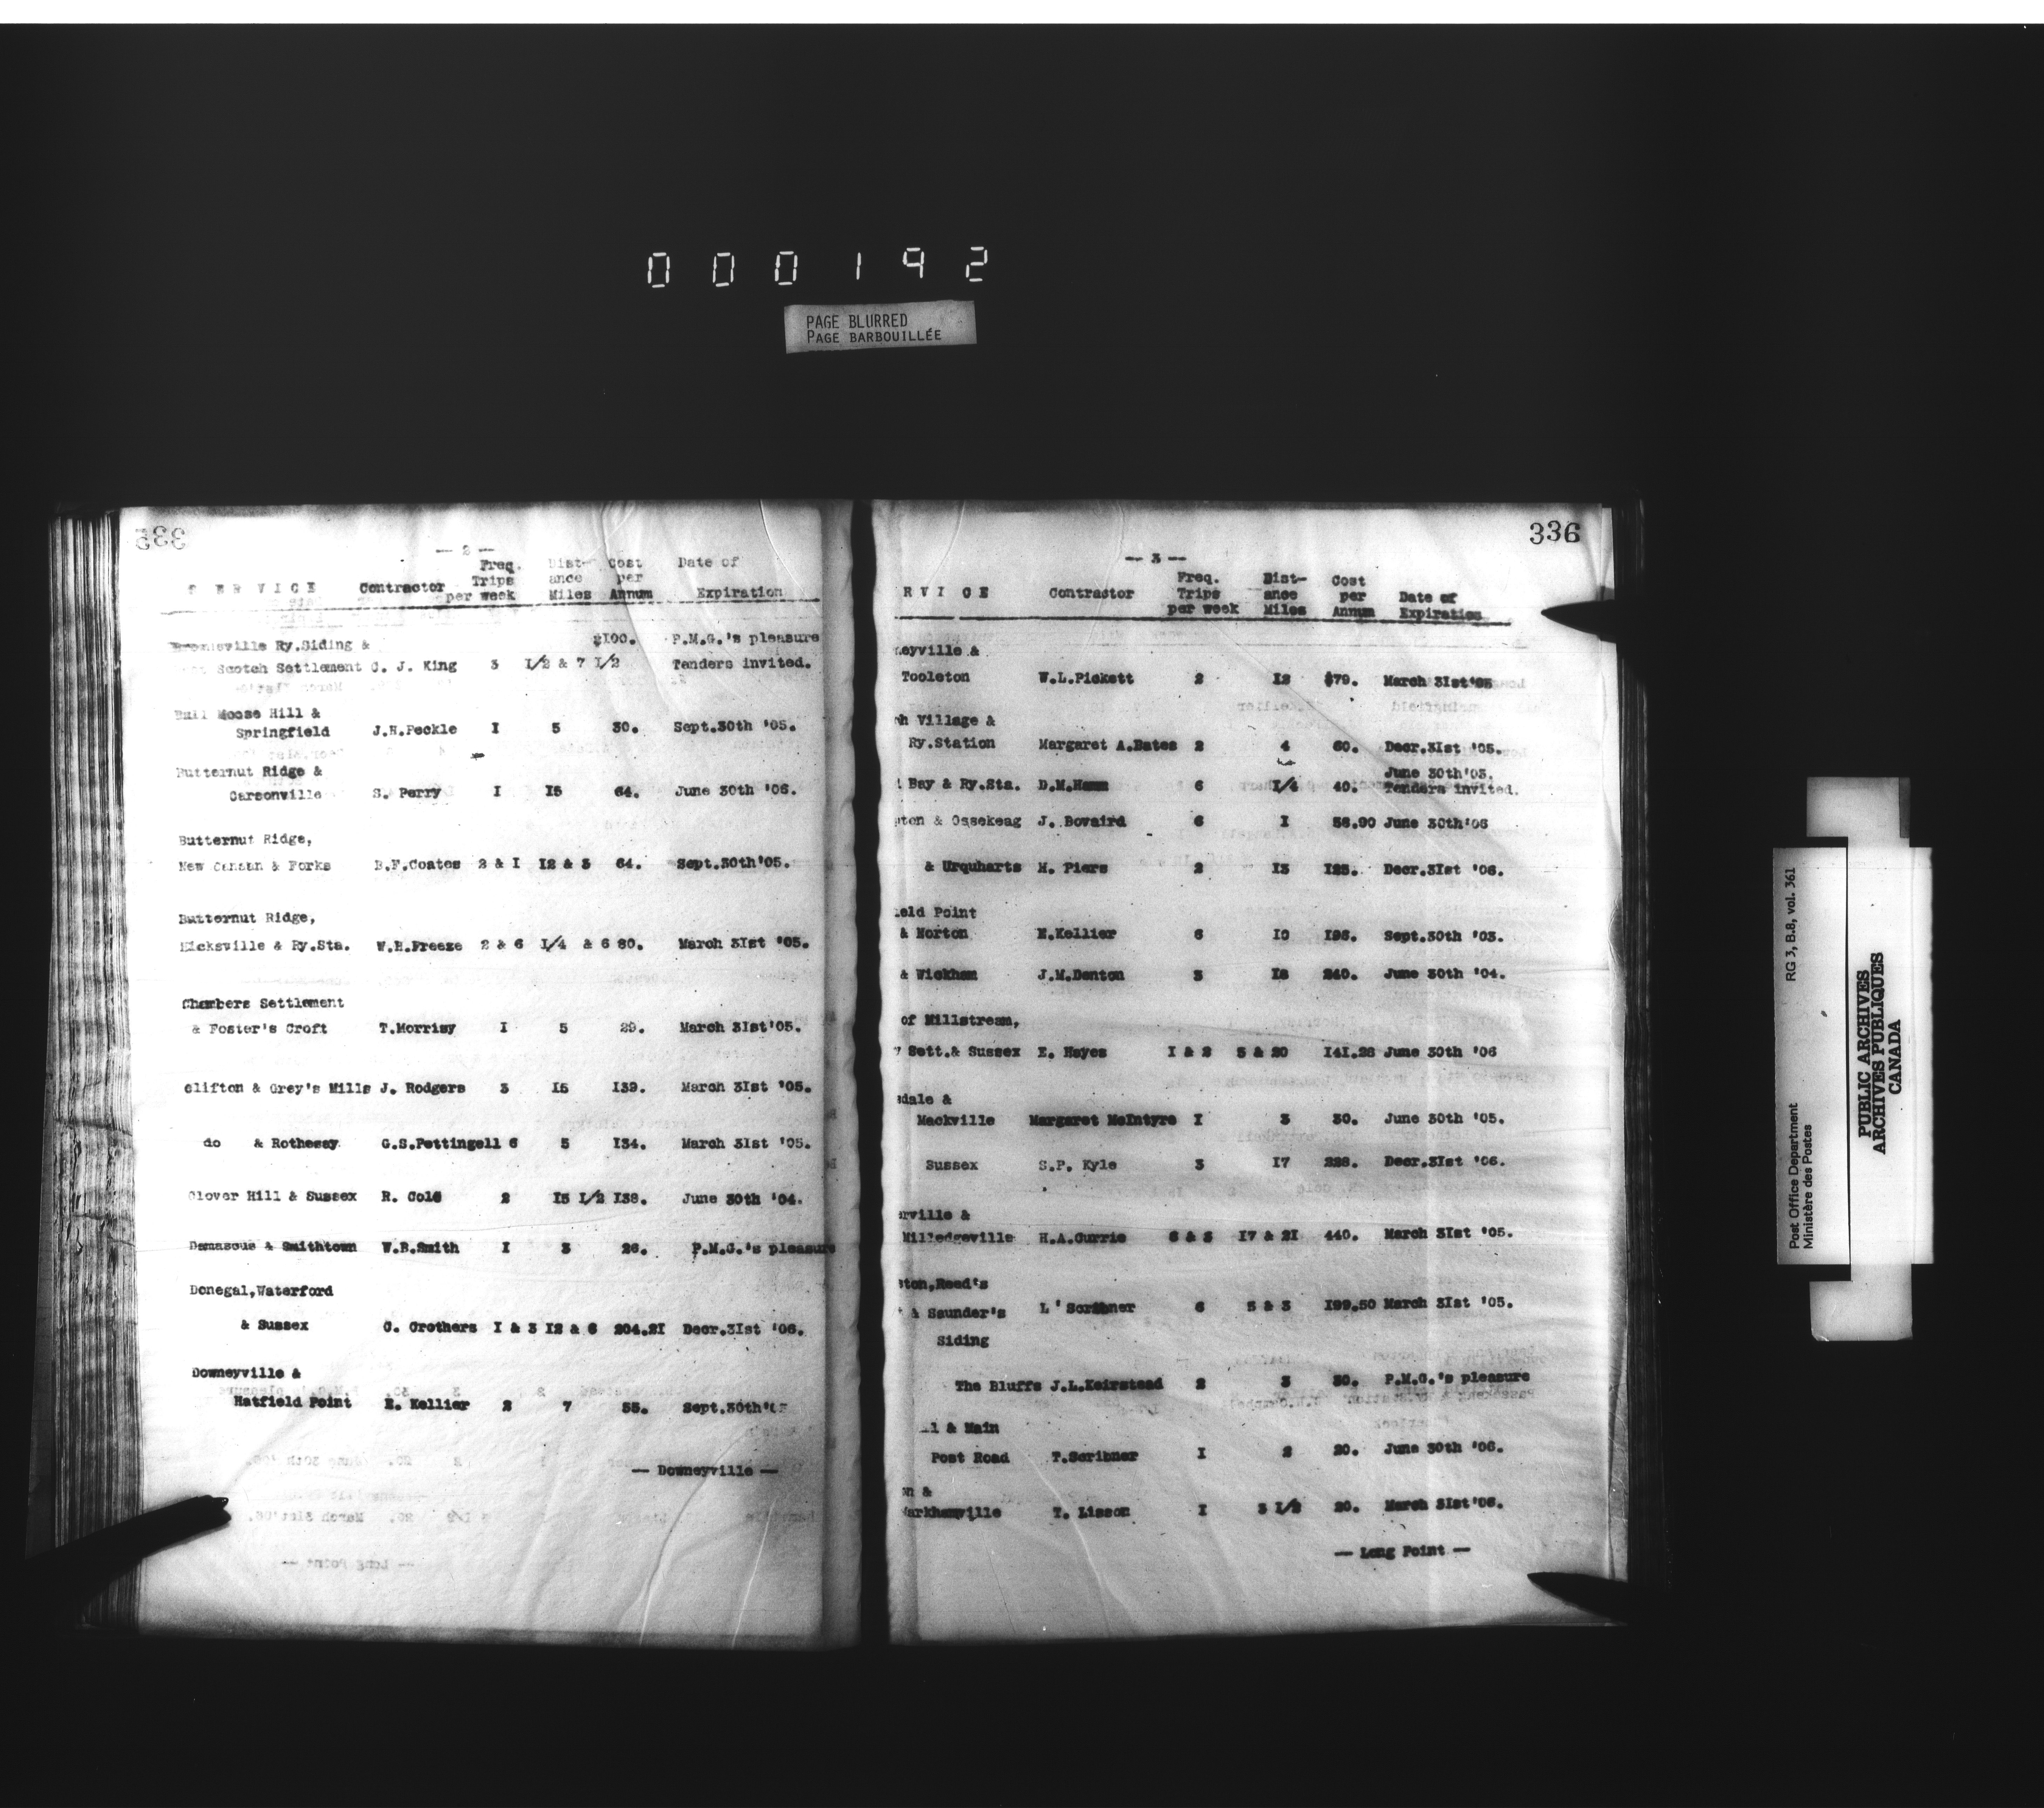 000192
PAGE BLURRED
PAGE BARBOUILLÉE
335
— 2 —
Freq. Dist- Cost Date of
Trips ance per
S E R V I C E Contractor per week Miles Annum Expiration
Ry.Siding & $100. P.M.G.'s pleasure
Scotch Settlement C. J. King 3 1/2 & 7 1/2 Tenders invited.
Bull Moose Hill &
Springfield J.H.Peckle I 5 30. Sept.30th '05.
Butternut Ridge &
Carsonville S. Perry I I5 64. June 30th '06.
Butternut Ridge,
New Canaan & Forks B.F.Coates 2 & I I2 & 3 64. Sept.30th'05.
Butternut Ridge,
Hicksville & Ry.Sta. W.H.Freeze 2 & 6 I/4 & 6 80. March 3Ist '05.
Chambers Settlement
& Foster's Croft T.Morrisy I 5 29. March 3Ist'05.
Clifton & Grey's Mills J. Rodgers 3 I5 I39. March 3Ist '05.
do & Rothesay G.S.Pettingell 6 5 I34. March 3Ist '05.
Clover Hill & Sussex R. Cole 2 I5 I/2 I38. June 30th '04.
Damascus & Smithtown W.B.Smith I 3 26. P.M.G.'s pleasure
Donegal,Waterford
& Sussex C. Crothers I & 3 I2 & 6 204.2I Decr.3Ist '06.
Downeyville &
Hatfield Point E. Kellier 2 7 55. Sept.30th'
— Downeyville —
336
— 3 —
Freq. Dist- Cost
Trips ance per Date of
RVICE Contractor per week Miles Annum Expiration
neyville &
Tooleton W.L.Pickett 2 I2 $79. March 3Ist'05
ph Village &
Ry.Station Margaret A.Bates 2 4 60. Decr.3Ist '05.
June 30th'03.
Bay & Ry.Sta. D.M.Hamm 6 I/4 40. Tenders invited.
pton & Ossekeag J. Bovaird 6 I 56.90 June 30th'06
& Urquharts M. Piers 2 I3 I25. Decr.3Ist '06.
ield Point
& Norton E.Kellier 6 I0 I98. Sept.30th '03.
& Wickham J.M.Denton 3 I8 240. June 30th '04.
of Millstream,
y Sett.& Sussex E. Hayes I & 2 5 & 20 I4I.28 June 30th '06
sdale &
Mackville Margaret McIntyre I 3 30. June 30th '05.
Sussex S.P. Kyle 3 I7 228. Decr.3Ist '06.
erville &
Milledgeville H.A.Currie 6 & 3 I7 & 2I 440. March 3Ist '05.
ston,Reed's
& Saunder's L' Scribner 6 5 & 3 I99.50 March 3Ist '05.
Siding
The Bluffs J.L.Keirstead 2 3 30. P.M.G.'s pleasure
ll & Main
Post Road T.Scribner I 2 20. June 30th '06.
on &
Markhamville T. Lisson I 3 I/2 20. March 3Ist'06.
— Long Point —
RG 3, B.8, vol. 361
Post Office Department
Ministère des Postes
PUBLIC ARCHIVES
ARCHIVES PUBLIQUES
CANADA